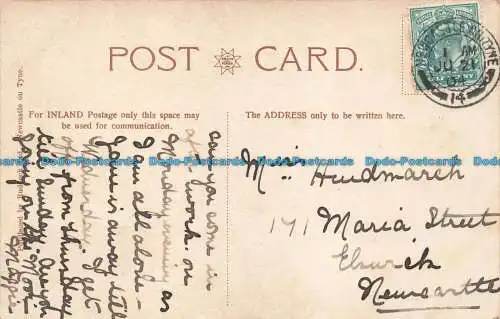 POST CARD.
For INLAND Postage only this space may
be used for communication.
The ADDRESS only to be written here.
Newcastle on Tyne.
Can you come in
after work on
Monday evening as
I am all alone -
Jane is away till
Wednesday. I get
off from Thursday
till Sunday. Are you
going on the Moor
Maggie
Miss Hindmarch
171 Maria Street
Elswick
Newcastle
1 AM
JU 21
14
Dodo-Postcards Dodo-Postcards Dodo-Postcards Dodo-Postcards Dodo-Postcards Dodo-Postcards Dodo-Postcards